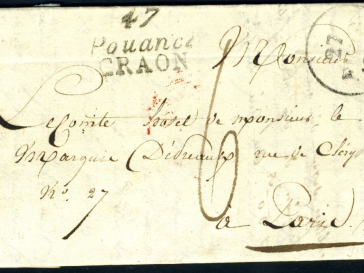 47
Pouancé
CRAON
Monsieur
27
Le Comte hotel de monsieur le
Marquis rue de Cléry
No. 27
6
à Paris